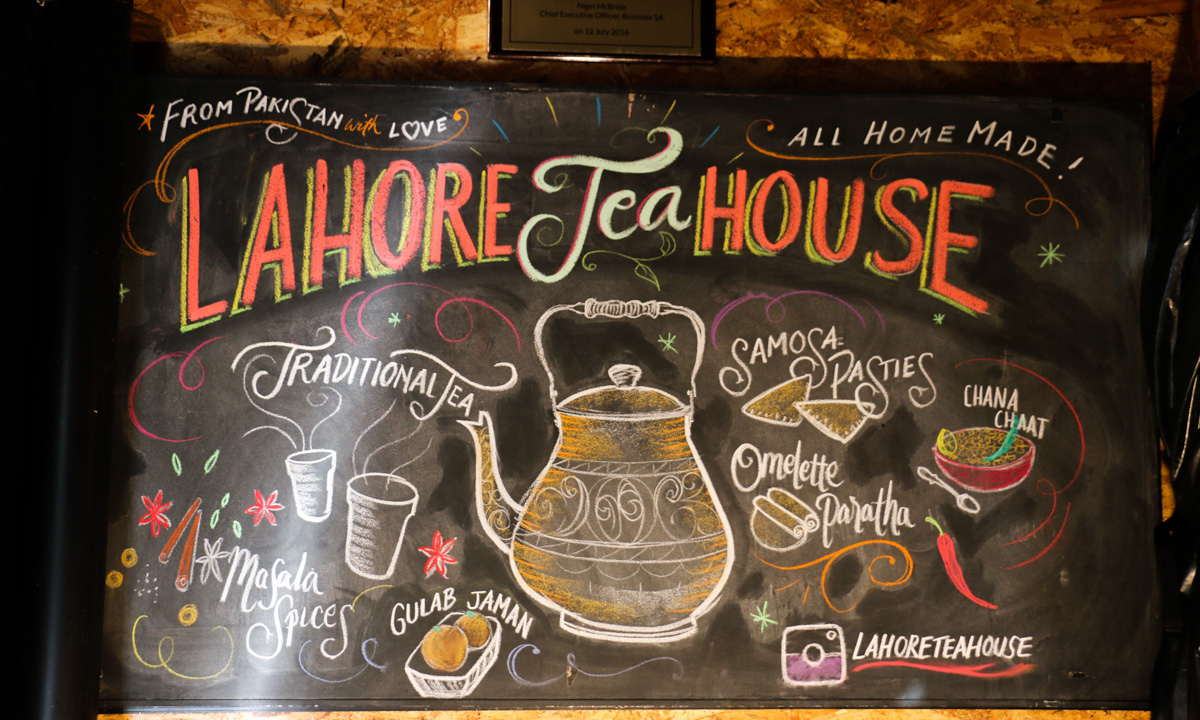 Nigel McBride
Chief Executive Officer, Business SA
on 12 July 2016
FROM PAKISTAN with LOVE
ALL HOME MADE!
LAHORE Tea HOUSE
TRADITIONAL TEA
SAMOSA
PASTIES
CHANA
CHAAT
Omelette
Paratha
Masala
Spices
GULAB JAMAN
LAHORETEAHOUSE